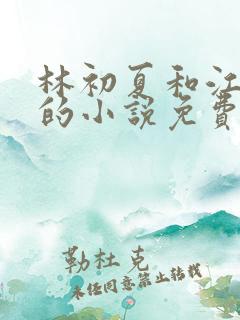 林初夏和江
的小说免費
勒杜克
未经同意禁止转载